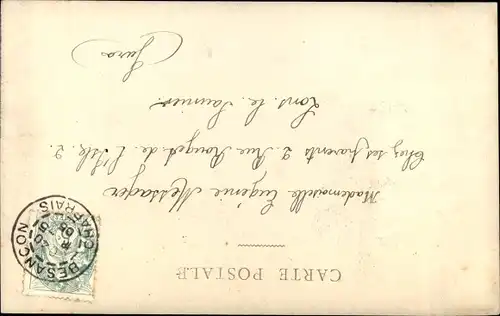 CARTE POSTALE
Mademoiselle Eugénie Messager
Chez ses parents 2. Rue Rouget de l'Isle, 2.
Lons. le. Saunier.
(Jura)
BESANÇON
CHAPRAIS